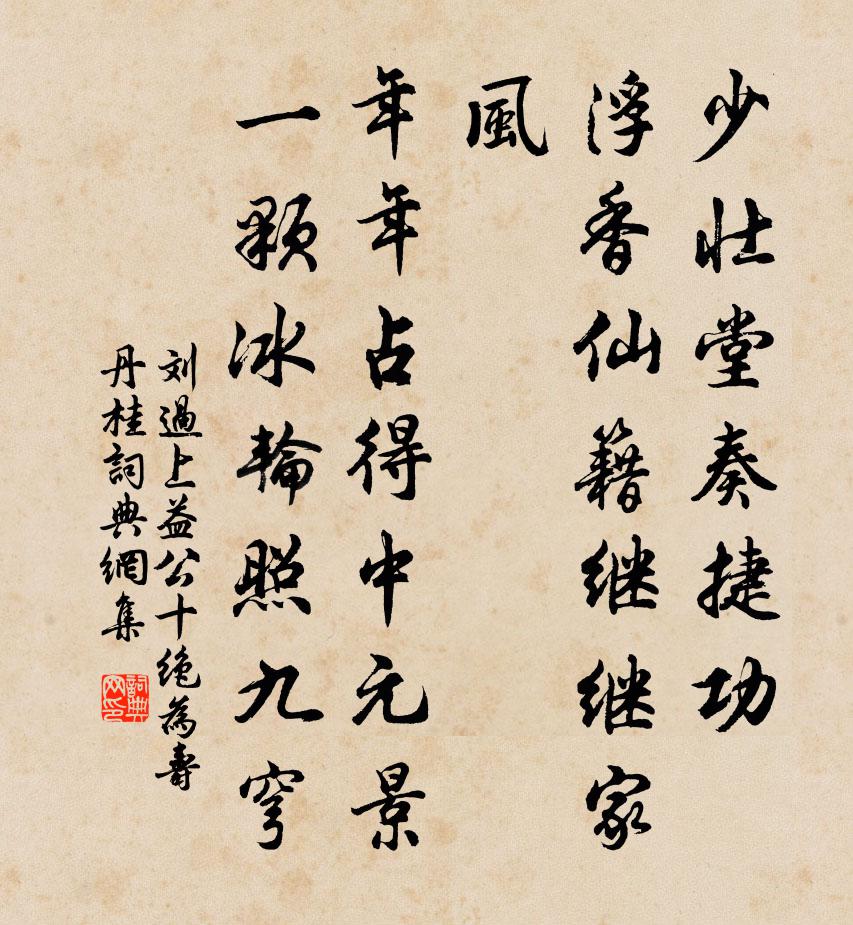 少壮堂奏捷功
浮香仙籍继继家
風
年年占得中元景
一顆冰輪照九穹
刘過上益公十絶為壽
丹桂詞典網集
詞典网印